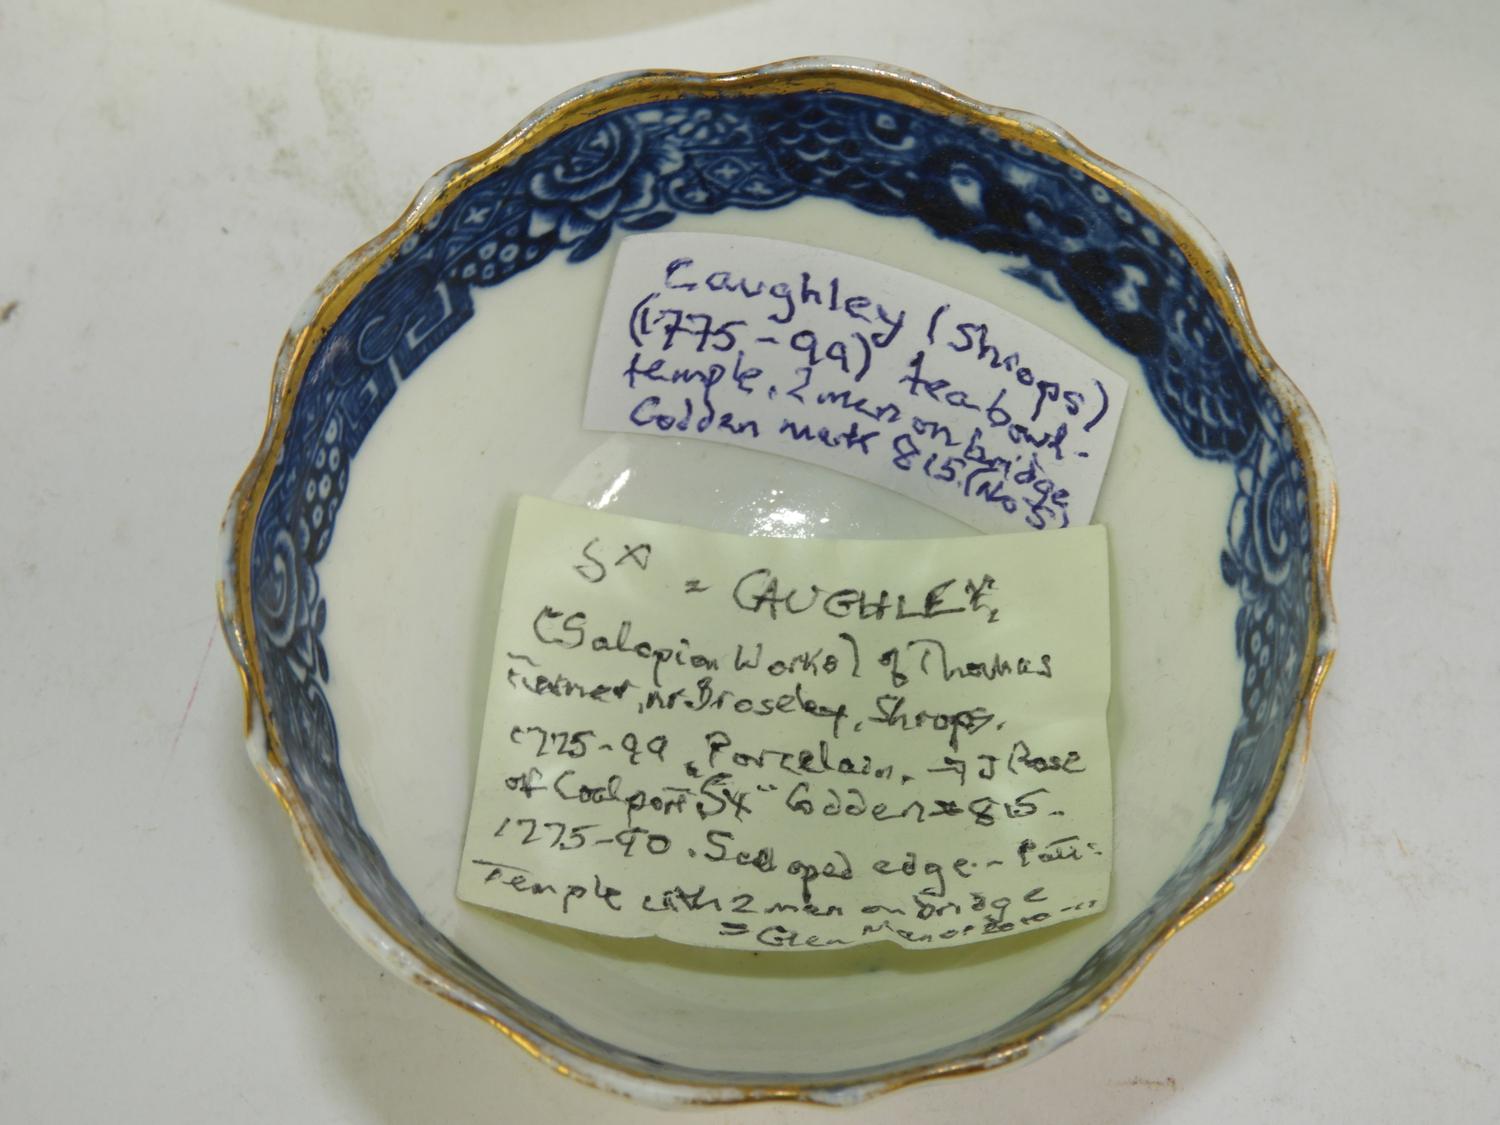 Caughley (Shrops)
(1775-99) tea bowl-
temple, 2 men on bridge
Godden mark 815. (No 5)
SX = CAUGHLEY,
(Salopian Works) of Thomas
Turner, nr. Broseley, Shrops.
1775-99. Porcelain. → J Rose
of Coalport. "SX" Godden 815.
1775-90. Scalloped edge - Patt:
Temple with 2 men on bridge
= Glen Manor